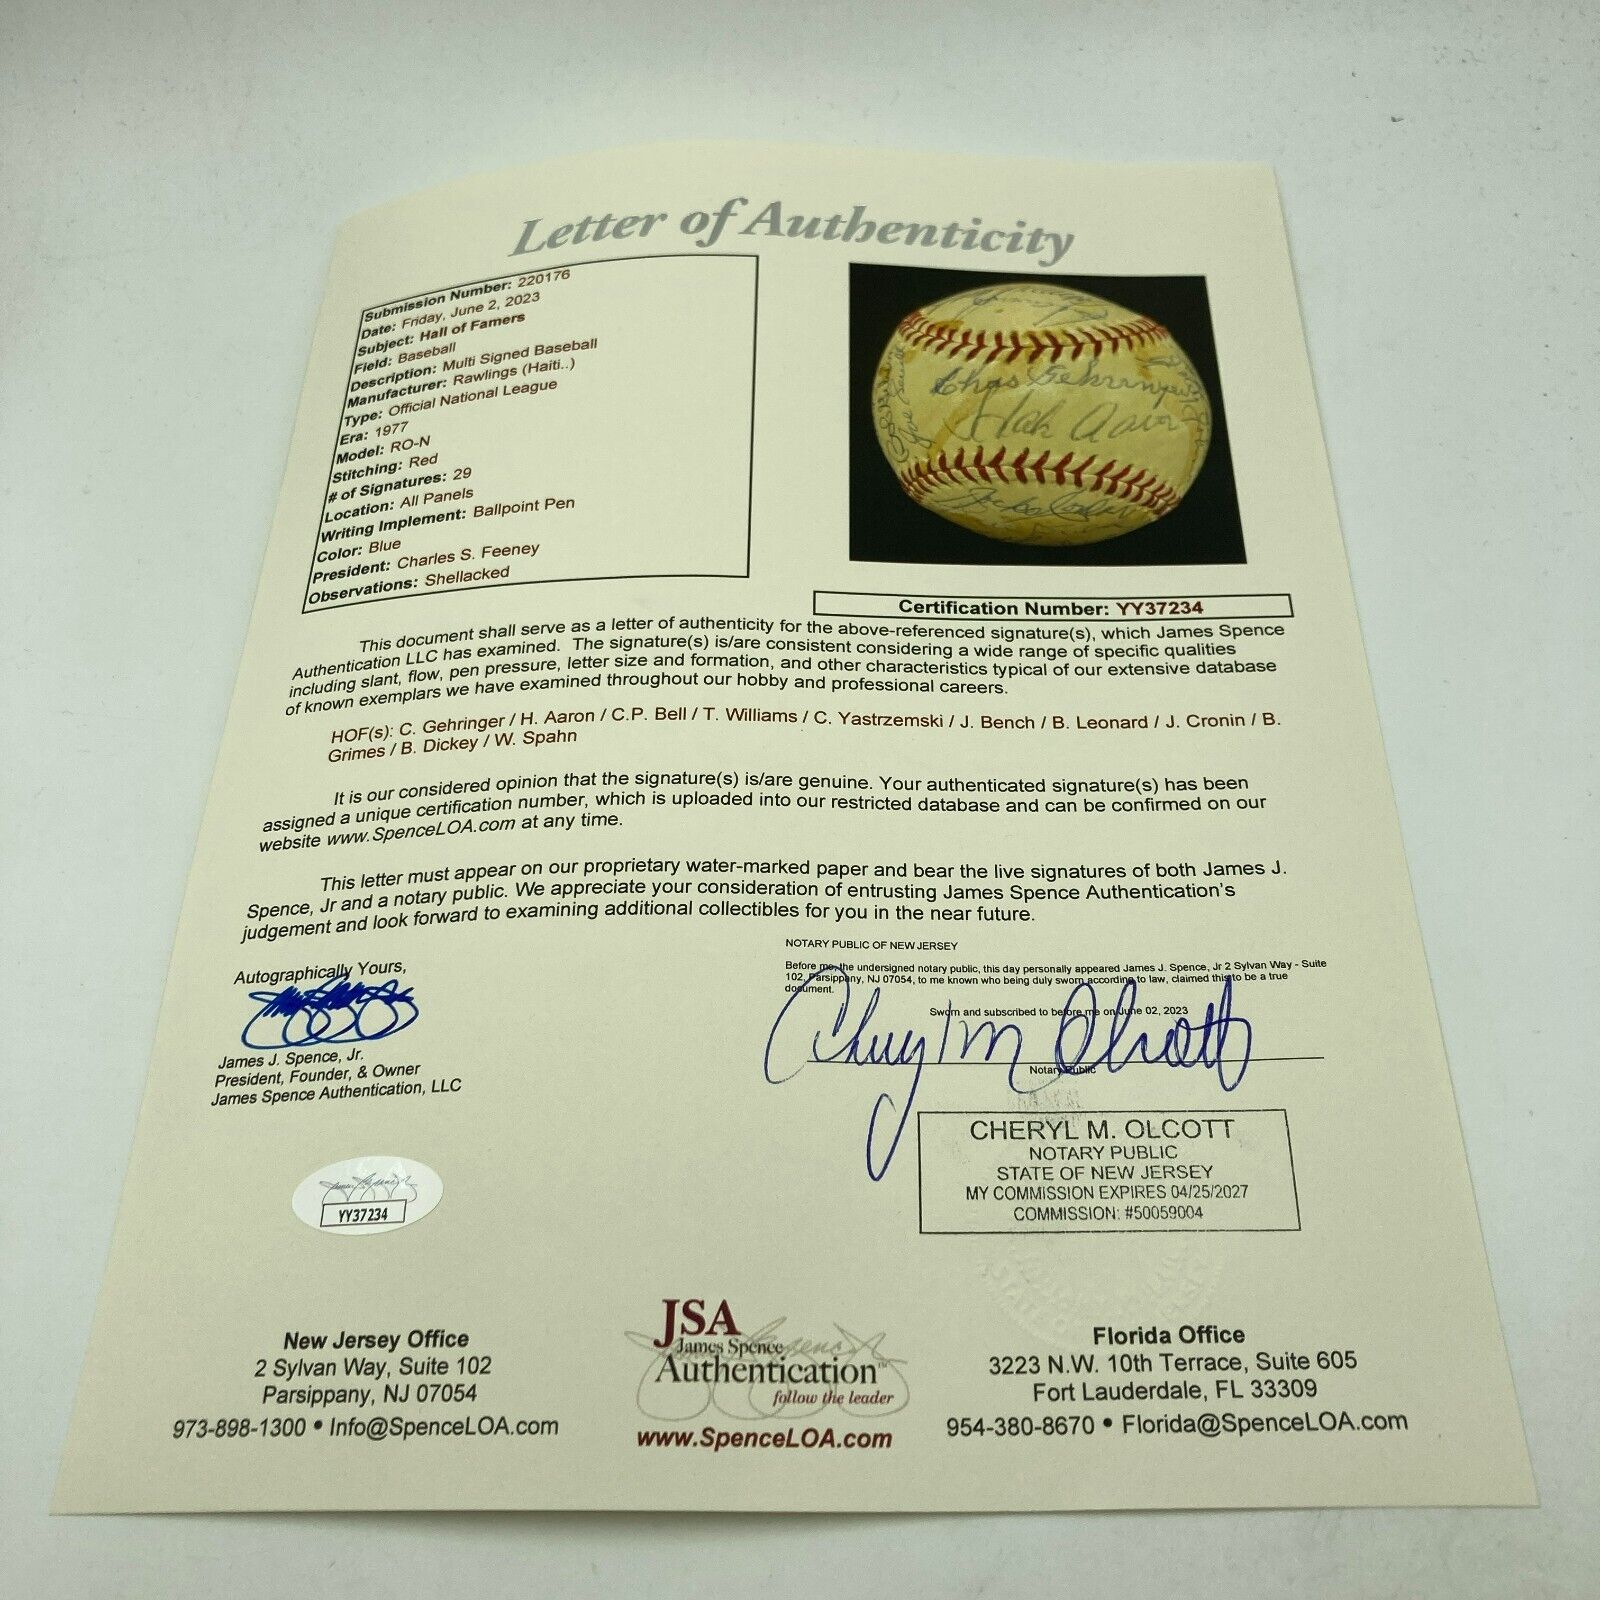 Letter of Authenticity
Submission Number: 220176
Date: Friday, June 2, 2023
Subject: Hall of Famers
Field: Baseball
Description: Multi Signed Baseball
Manufacturer: Rawlings (Haiti..)
Type: Official National League
Era: 1977
Model: RO-N
Stitching: Red
# of Signatures: 29
Location: All Panels
Writing Implement: Ballpoint Pen
Color: Blue
President: Charles S. Feeney
Observations: Shellacked
Chas Gehringer
Hank Aaron
Certification Number: YY37234
This document shall serve as a letter of authenticity for the above-referenced signature(s), which James Spence
Authentication LLC has examined. The signature(s) is/are consistent considering a wide range of specific qualities
including slant, flow, pen pressure, letter size and formation, and other characteristics typical of our extensive database
of known exemplars we have examined throughout our hobby and professional careers.
HOF(s): C. Gehringer / H. Aaron / C.P. Bell / T. Williams / C. Yastrzemski / J. Bench / B. Leonard / J. Cronin / B.
Grimes / B. Dickey / W. Spahn
It is our considered opinion that the signature(s) is/are genuine. Your authenticated signature(s) has been
assigned a unique certification number, which is uploaded into our restricted database and can be confirmed on our
website www.SpenceLOA.com at any time.
This letter must appear on our proprietary water-marked paper and bear the live signatures of both James J.
Spence, Jr and a notary public. We appreciate your consideration of entrusting James Spence Authentication's
judgement and look forward to examining additional collectibles for you in the near future.
Autographically Yours,
James J. Spence, Jr.
President, Founder, & Owner
James Spence Authentication, LLC
NOTARY PUBLIC OF NEW JERSEY
Before me, the undersigned notary public, this day personally appeared James J. Spence, Jr 2 Sylvan Way - Suite
102, Parsippany, NJ 07054, to me known who being duly sworn according to law, claimed this to be a true
document.
Sworn and subscribed to before me on June 02, 2023
Cheryl M Olcott
Notary Public
CHERYL M. OLCOTT
NOTARY PUBLIC
STATE OF NEW JERSEY
MY COMMISSION EXPIRES 04/25/2027
COMMISSION: #50059004
YY37234
New Jersey Office
2 Sylvan Way, Suite 102
Parsippany, NJ 07054
973-898-1300 • Info@SpenceLOA.com
JSA
James Spence
Authentication™
follow the leader
www.SpenceLOA.com
Florida Office
3223 N.W. 10th Terrace, Suite 605
Fort Lauderdale, FL 33309
954-380-8670 • Florida@SpenceLOA.com